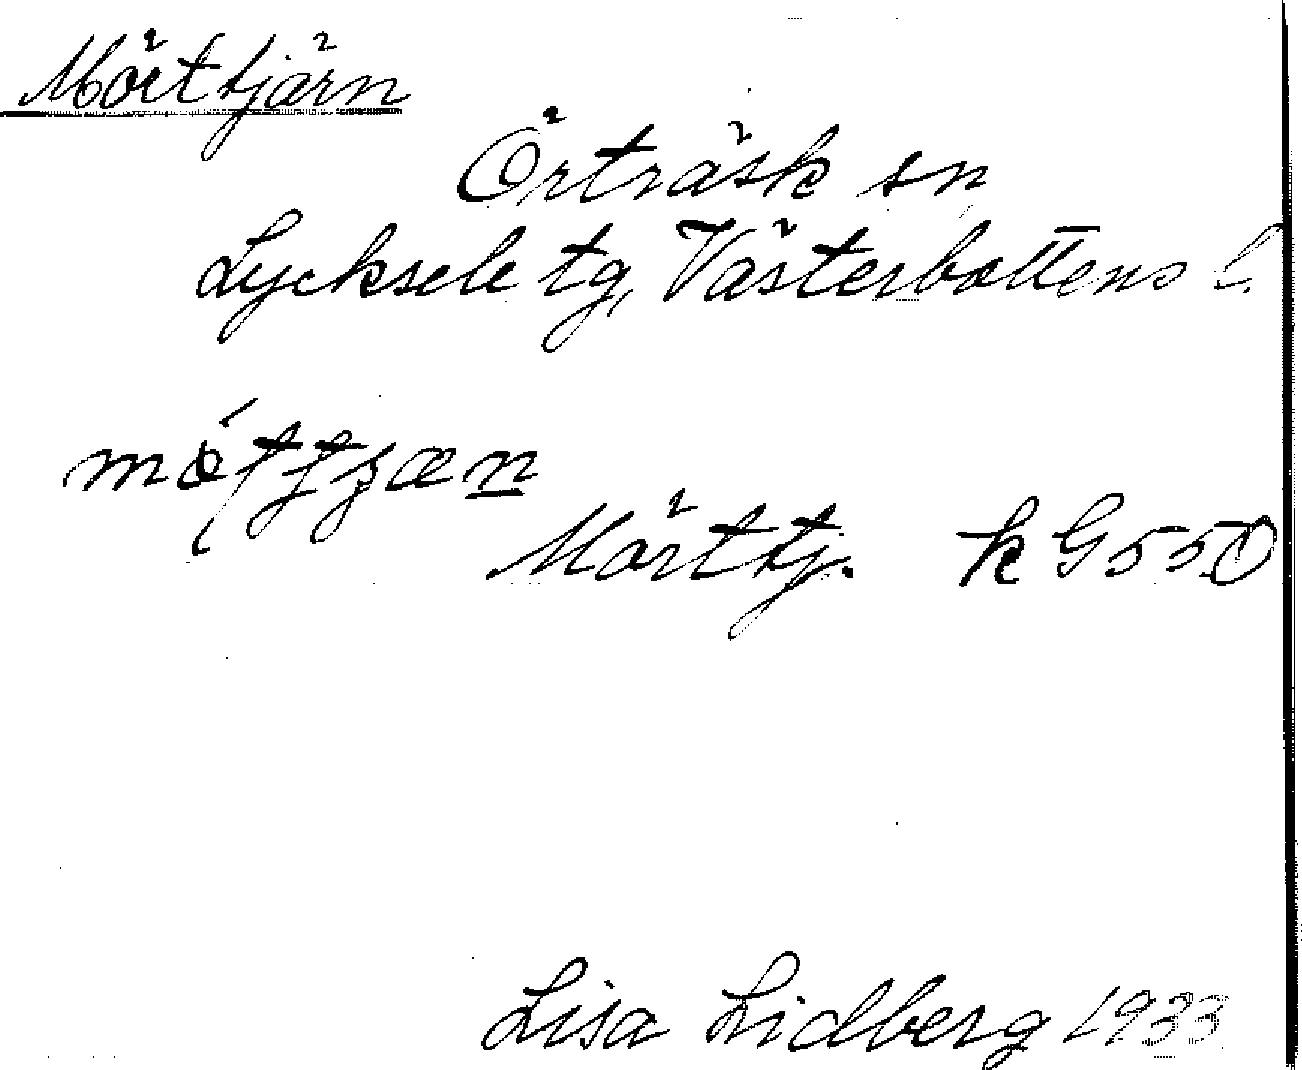 Mörttjärn
Örträsk sn
Lycksele tg, Västerbottens l.
Mörttj. k G 550
Lisa Lidberg 1933